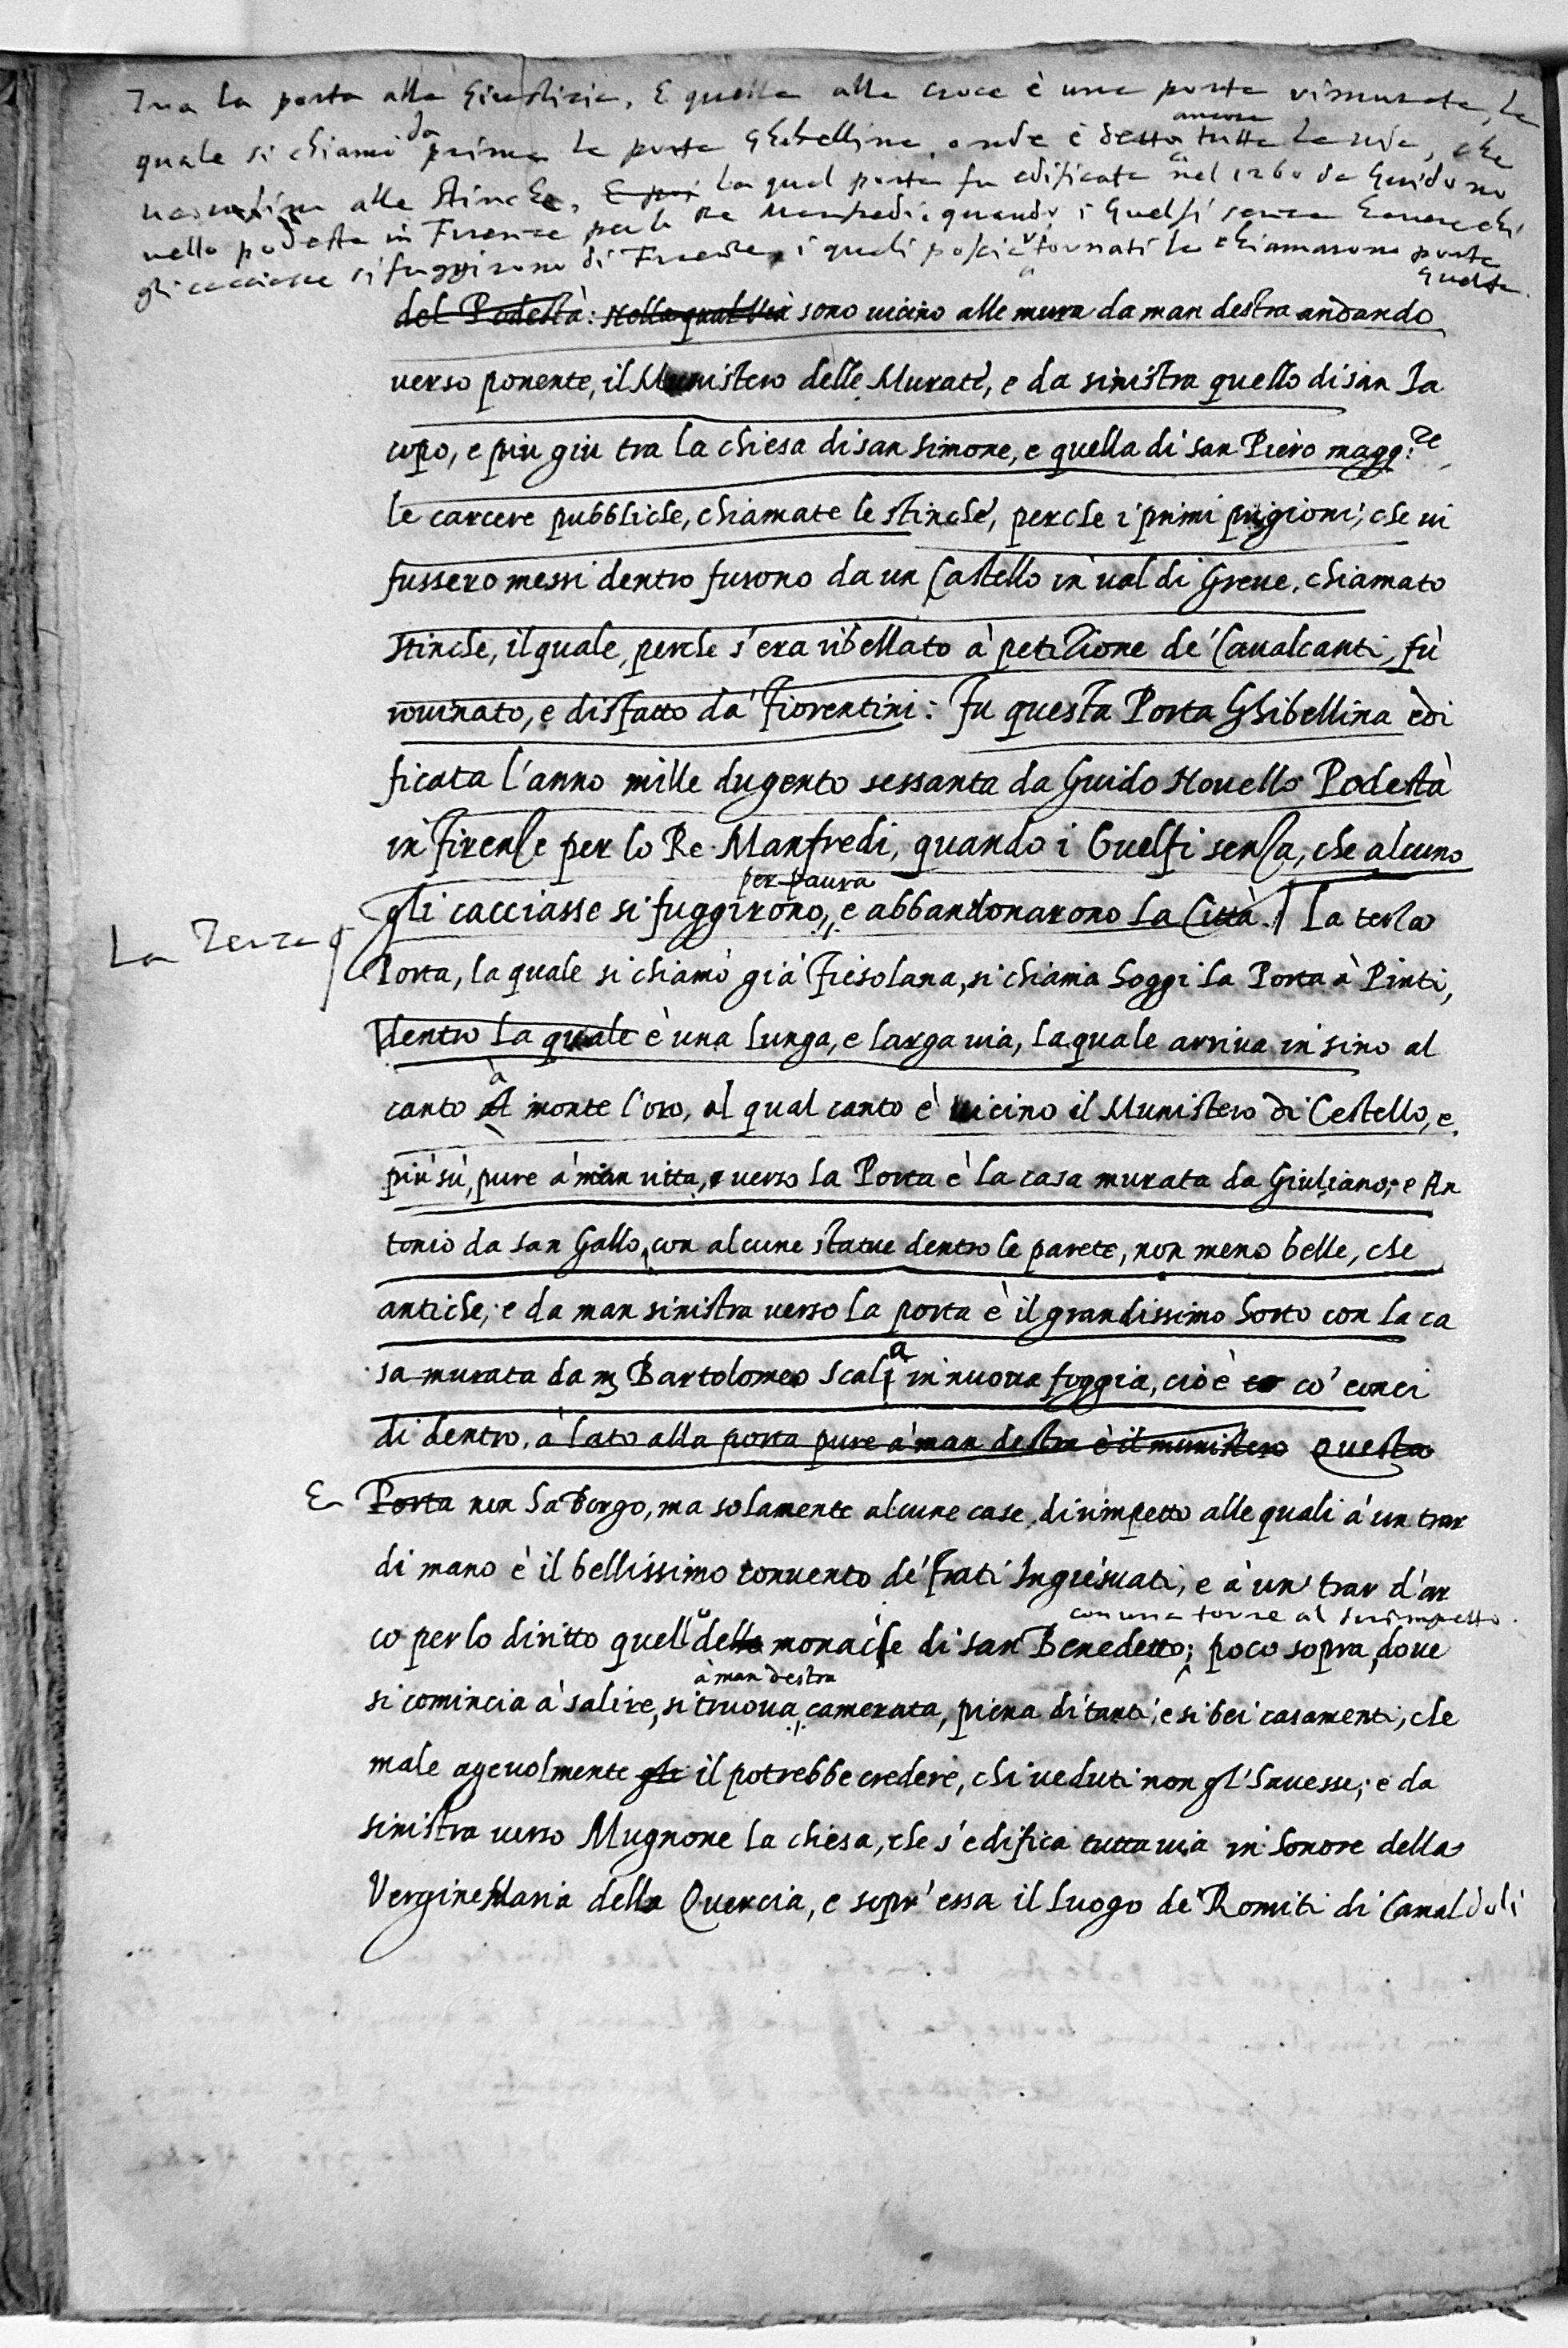 Tra la porta alla Giustizia, E quella alla croce è una porta rimurata, la
quale si chiamò da prima la porta Ghibellina, onde è detta ancora tutta la via, che
va infino alle stinche, E poi La qual porta fu edificata nel 1260 da Guido no
vello podestà in Firenze per lo Re Manfredi, quando i Guelfi senza havere chi
gli cacciasse si fuggirono di Firenze, i quali poscia ritornati la chiamarono porta
Guelfa.
del Podestà: Nella qual via sono uicino alle mura da man destra andando
uerso ponente, il Munistero delle Murate, e da sinistra quello di san Ia
copo, e piu giu tra la chiesa di san Simone, e quella di san Piero magg.re,
le carcere pubbliche, chiamate le stinche, perche i primi prigioni, che ui
fussero messi dentro furono da un Castello in ual di Greue, chiamato
stinche, il quale, perche s'era ribellato à petizione de' Caualcanti, fù
rouinato, e disfatto da' fiorentini: fu questa Porta Ghibellina edi
ficata l'anno mille dugento sessanta da Guido Nouello Podestà
in firenze per lo Re Manfredi, quando i Guelfi senza, che alcuno
per paura
gli cacciasse si fuggirono, e abbandonarono la Città. La terza
La Terza
Porta, la quale si chiamò già fiesolana, si chiama hoggi la Porta à Pinti,
dentro la quale è una lunga, e larga uia, la quale arriua in sino al
canto à monte l'oro, al qual canto è uicino il Munistero di Cestello, e
più sù, pure à man ritta, uerso la Porta è la casa murata da Giuliano, e An
tonio da san Gallo, con alcune statue dentro le parete, non meno belle, che
antiche; e da man sinistra uerso la porta è il grandissimo horto con la ca
sa murata da m Bartolomeo Scala in nuoua foggia, cioè co' conci
di dentro, à lato alla porta pure à man destra è il munistero Questa
E Porta non ha Borgo, ma solamente alcune case dirimpetto alle quali à un trar
di mano è il bellissimo conuento de' frati Ingiesuati, e à un' trar d'ar
con una torre al dirimpetto
co per lo diritto quello delle monache di san Benedetto; poco sopra, doue
à man destra
si comincia à salire, si truoua camerata, piena di tanti, e si bei casamenti, che
male ageuolmente gli il potrebbe credere, chi ueduti non gl' hauesse; e da
sinistra uerso Mugnone la chiesa, che s'edifica tuttauia in honore della
Vergine Maria della Quercia, e sopr' essa il luogo de' Romiti di Camaldoli